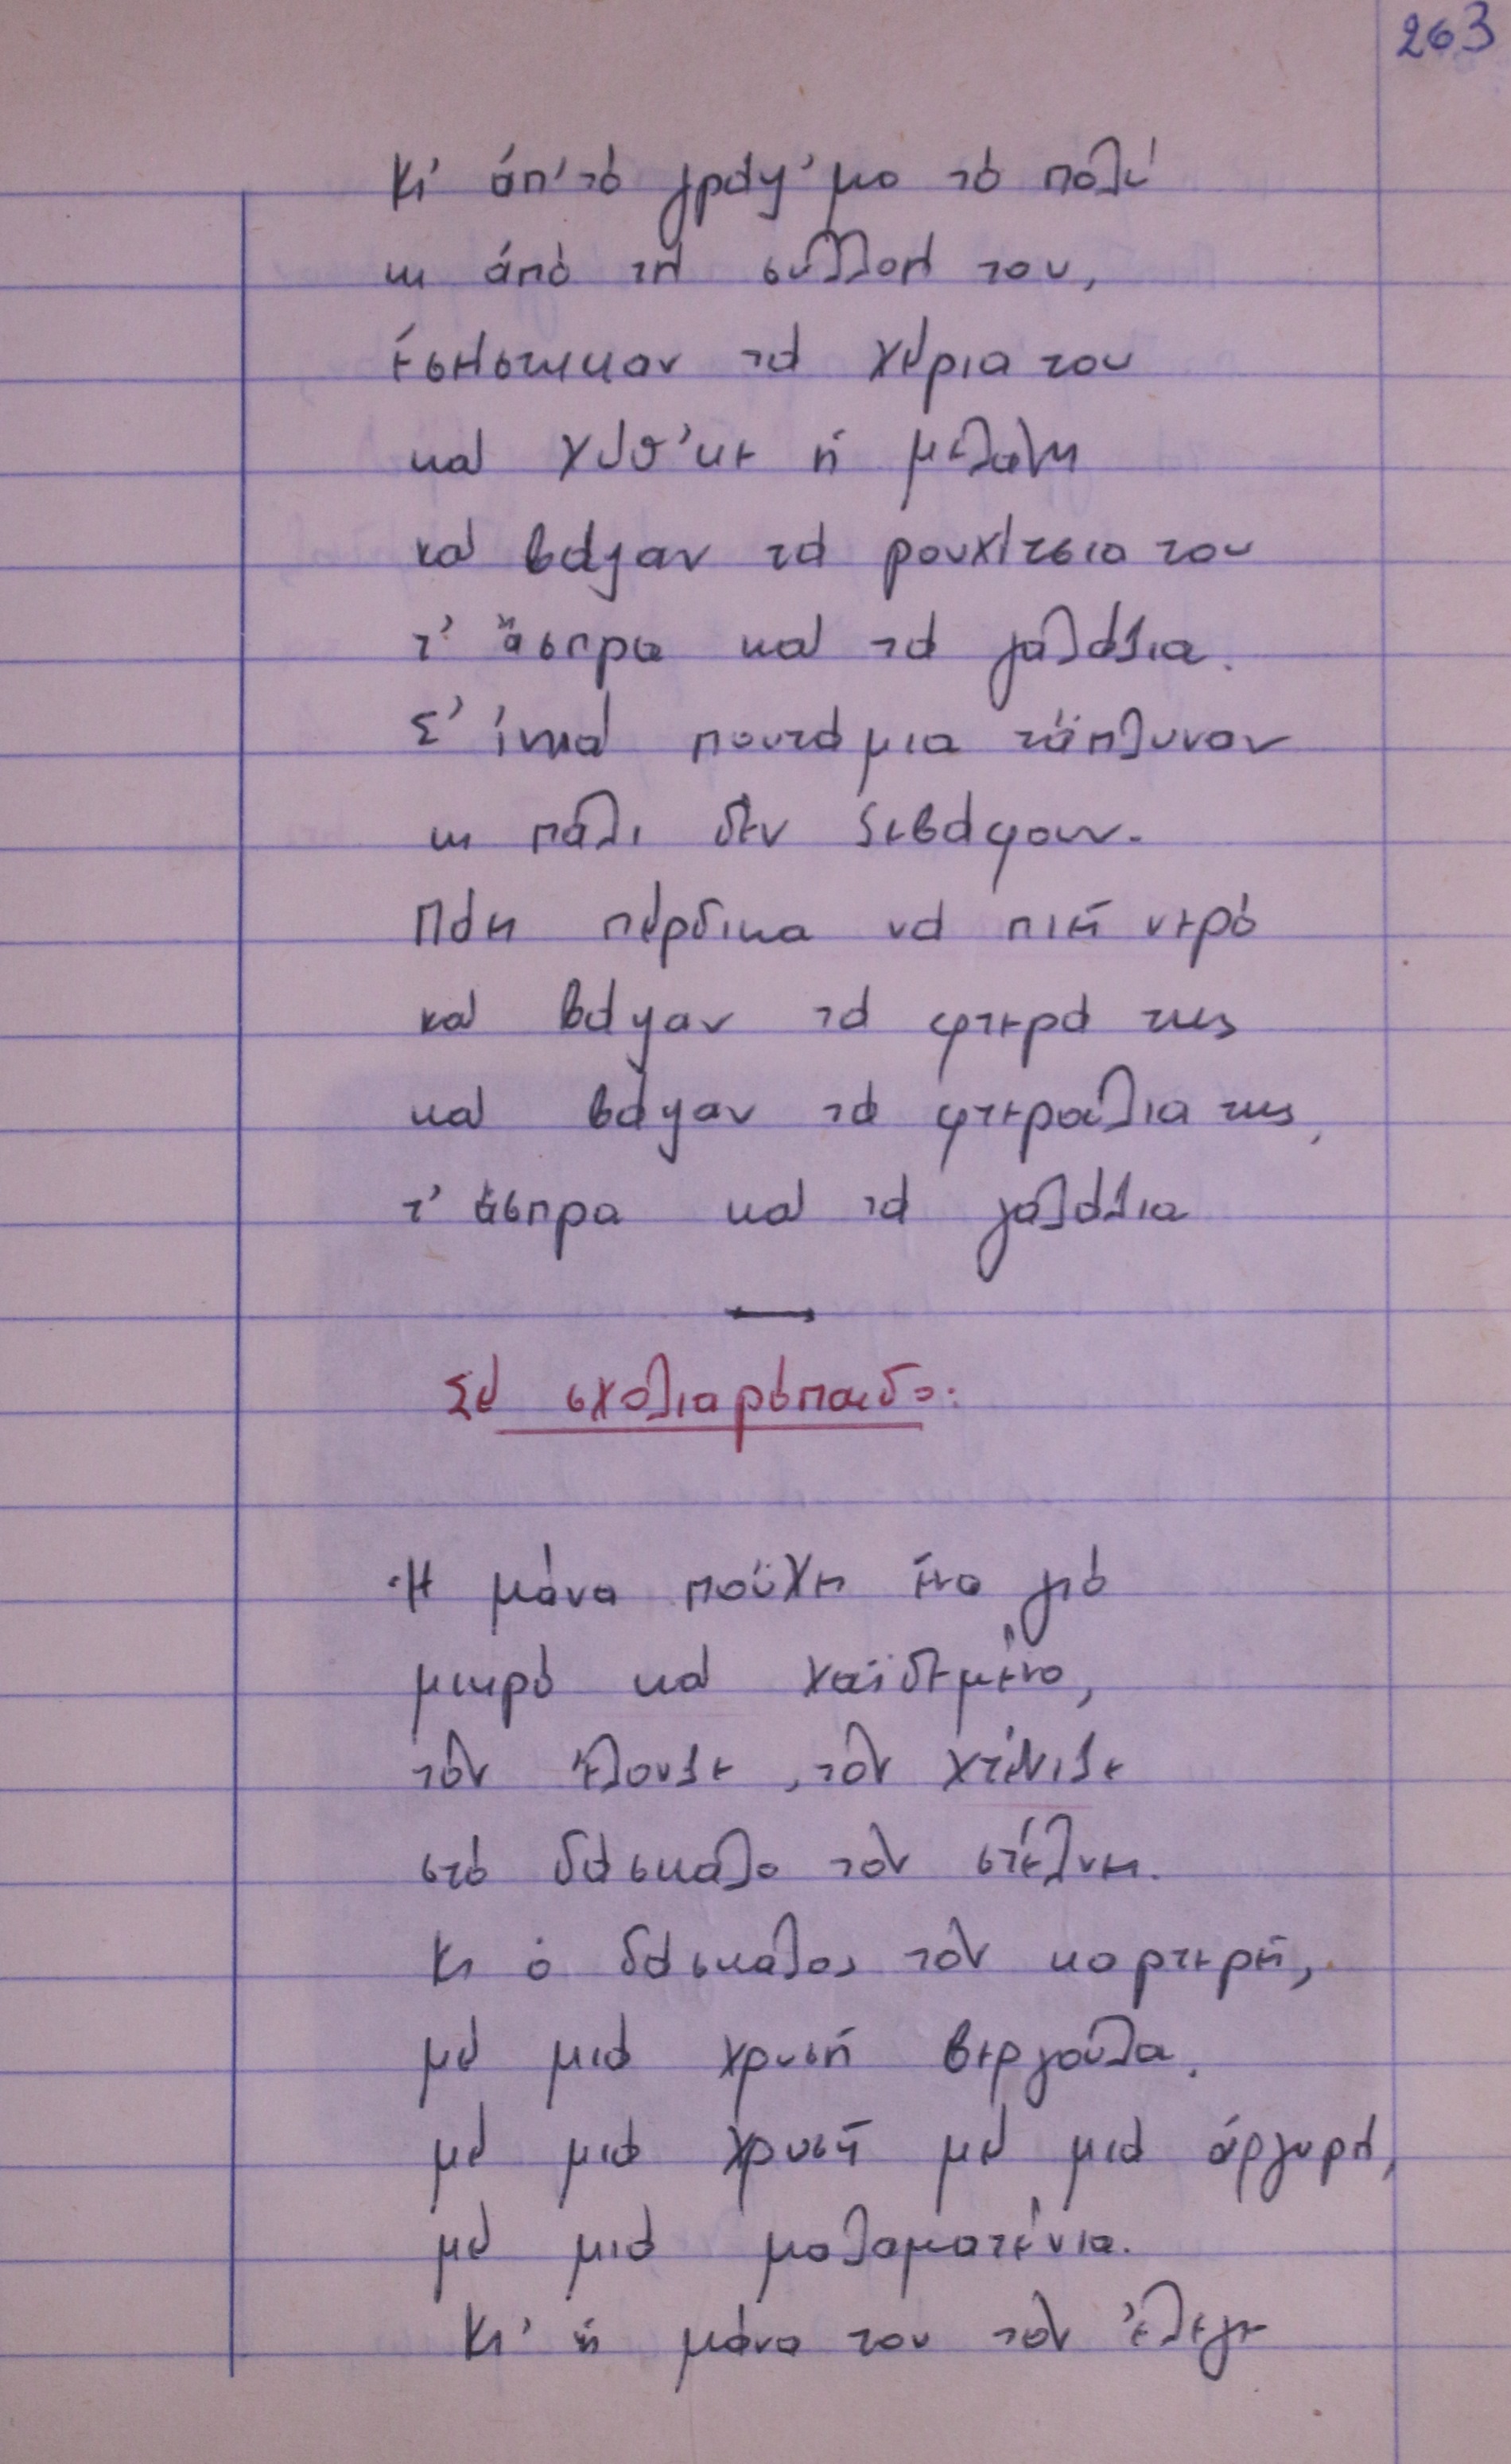 263
Κι' ἀπ' τὸ γράψ'μο τὸ πολύ
κι ἀπὸ τὴ συλλοή του,
ἐσείστηκαν τὰ χέρια του
καὶ χύθ'κε ἡ μελάνη
καὶ βάψαν τὰ ρουχίτσια του
τ' ἄσπρα καὶ τὰ γαλάζια.
Σ' ἐννιὰ ποντάμια τἄπλυναν
κι πάλι δὲν ξεβάφουν.
Πάει πέρδικα νὰ πιῆ νερὸ
καὶ βάψαν τὰ φτερά της
καὶ βάψαν τὰ φτεράλια της,
τ' ἄσπρα καὶ τὰ γαλάζια
Σὲ σχολιαρόπαιδο:
Ἡ μάνα ποὔχει ἕνα γιὸ
μικρὸ καὶ χαϊδεμένο,
τὸν ἔλουζε, τὸν χτένιζε
στὸ δάσκαλο τὸν στέλνει.
Κι ὁ δάσκαλος τὸν καρτερεῖ,
μὲ μιὰ χρυσῆ βεργούλα.
μὲ μιὰ χρυσῆ μὲ μιὰ ἀργυρή,
μὲ μιὰ μαλαματένια.
Κι' ἡ μάνα του τὸν ἔλεγε